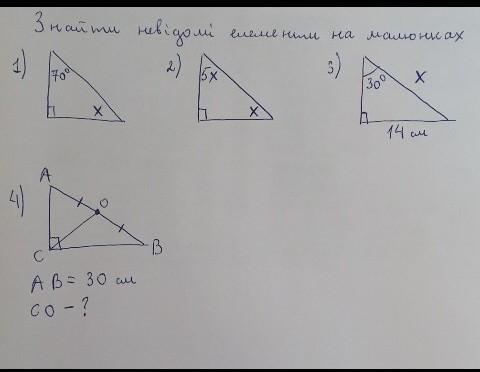 Знайти невідомі елементи на малюнках
1) 70° x
2) 5x x
3) 30° x
14 см
4) A O
C B
AB = 30 см
CO - ?